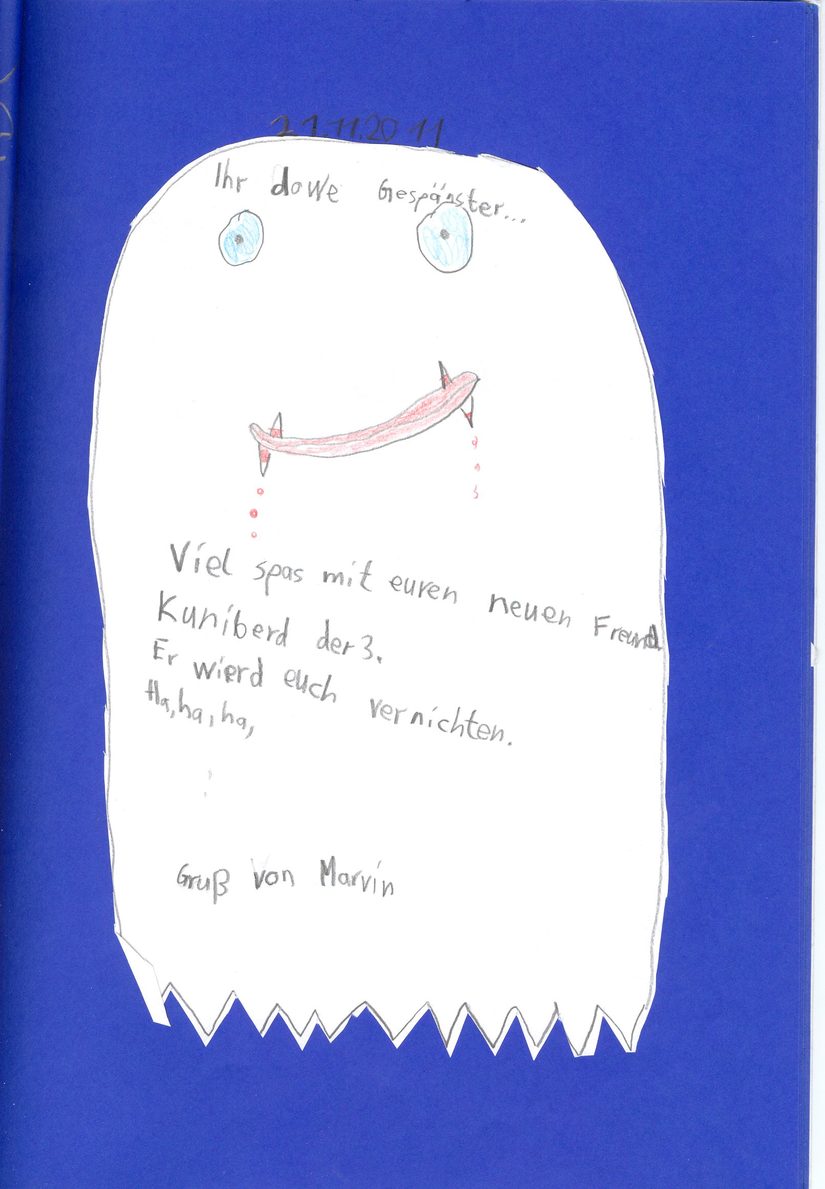 21.11.2011
Ihr dowe Gespänster...
Viel spas mit euren neuen Freund
Kuniberd der 3.
Er wierd euch vernichten.
Ha, ha, ha,
Gruß von Marvin